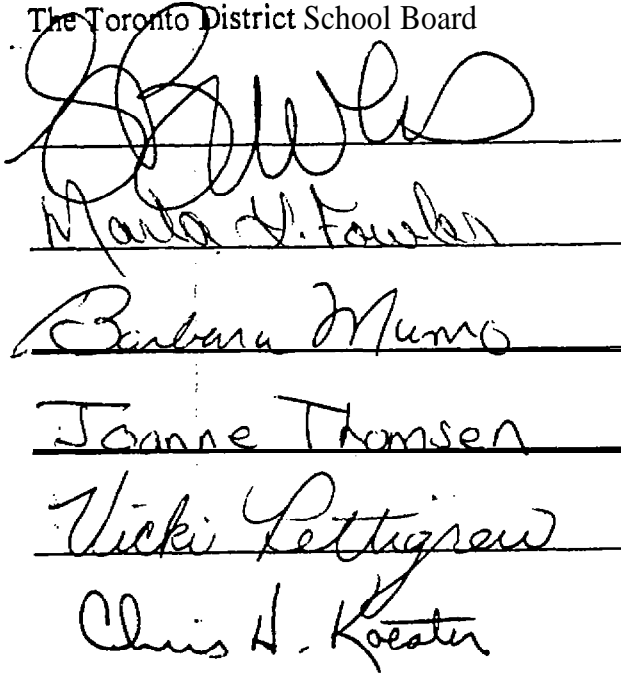 The Toronto District School Board
Marla Y. Fowler
Barbara Munro
Joanne Thomsen
Vicki Pettigrew
Chris H. Koester